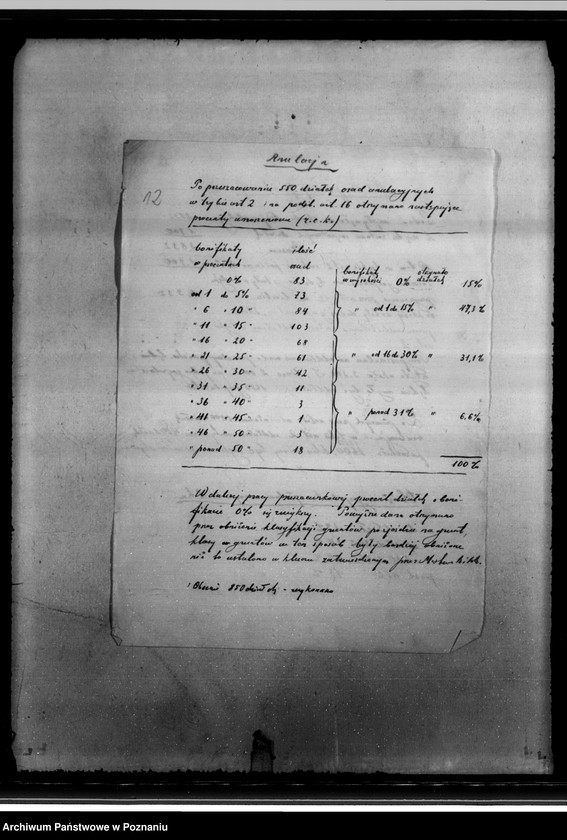 12
Po przeszacowaniu 550 działek osad anulacyjnych
w trybie art 2 i na podst. art 16 otrzymano następujące
procenty
bonifikaty ilość
w procentach osad
0% 83
od 1 do 5% 73
" 6 " 10 " 84
" 11 " 15 " 103
" 16 " 20 " 68
" 21 " 25 " 61
" 26 " 30 " 42
" 31 " 35 " 11
" 36 " 40 " 3
" 41 " 45 " 1
" 46 " 50 " 3
" ponad 50 " 18
bonifikatę otrzymało
w wysokości 0% działek 15%
" od 1 do 15% " 47,3%
" od 16 do 30% " 31,1%
" ponad 31% " 6,6%
100%
W dalszej pracy przeszacunkowej procent działek o boni-
fikacie 0% się zwiększy. Powyższe dane otrzymano
przez obniżenie klasyfikacji gruntów
klasy gruntów w ten sposób były bardziej obniżone
niż to ustalono w
850 działek - wykonano
Archiwum Państwowe w Poznaniu